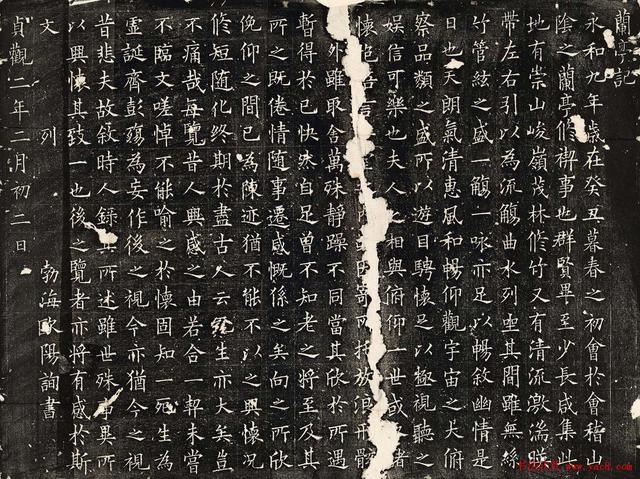 蘭亭記
永和九年歲在癸丑暮春之初會於會稽山
陰之蘭亭脩禊事也群賢畢至少長咸集此
地有崇山峻嶺茂林脩竹又有清流激湍暎
帶左右引以為流觴曲水列坐其間雖無絲
竹管絃之盛一觴一咏亦足以暢敘幽情是
日也天朗氣清惠風和暢仰觀宇宙之大俯
察品類之盛所以遊目騁懷足以極視聽之
娛信可樂也夫人之相與俯仰一世或諸
懷吾言因寄所托放浪形骸
外雖取舍萬殊靜躁不同當其欣於所遇
暫得於己快然自足曾不知老之將至及其
所之既倦情隨事遷感慨係之矣向之所欣
俛仰之間已為陳迹猶不能不以之興懷況
脩短隨化終期於盡古人云死生亦大矣豈
不痛哉每覽昔人興感之由若合一契未嘗
不臨文嗟悼不能喻之於懷固知一死生為
虛誕齊彭殤為妄作後之視今亦猶今之視
昔悲夫故敘時人錄其所述雖世殊事異所
以興懷其致一也後之覽者亦將有感於斯
文 列 勃海歐陽詢書
貞觀二年二月初二日